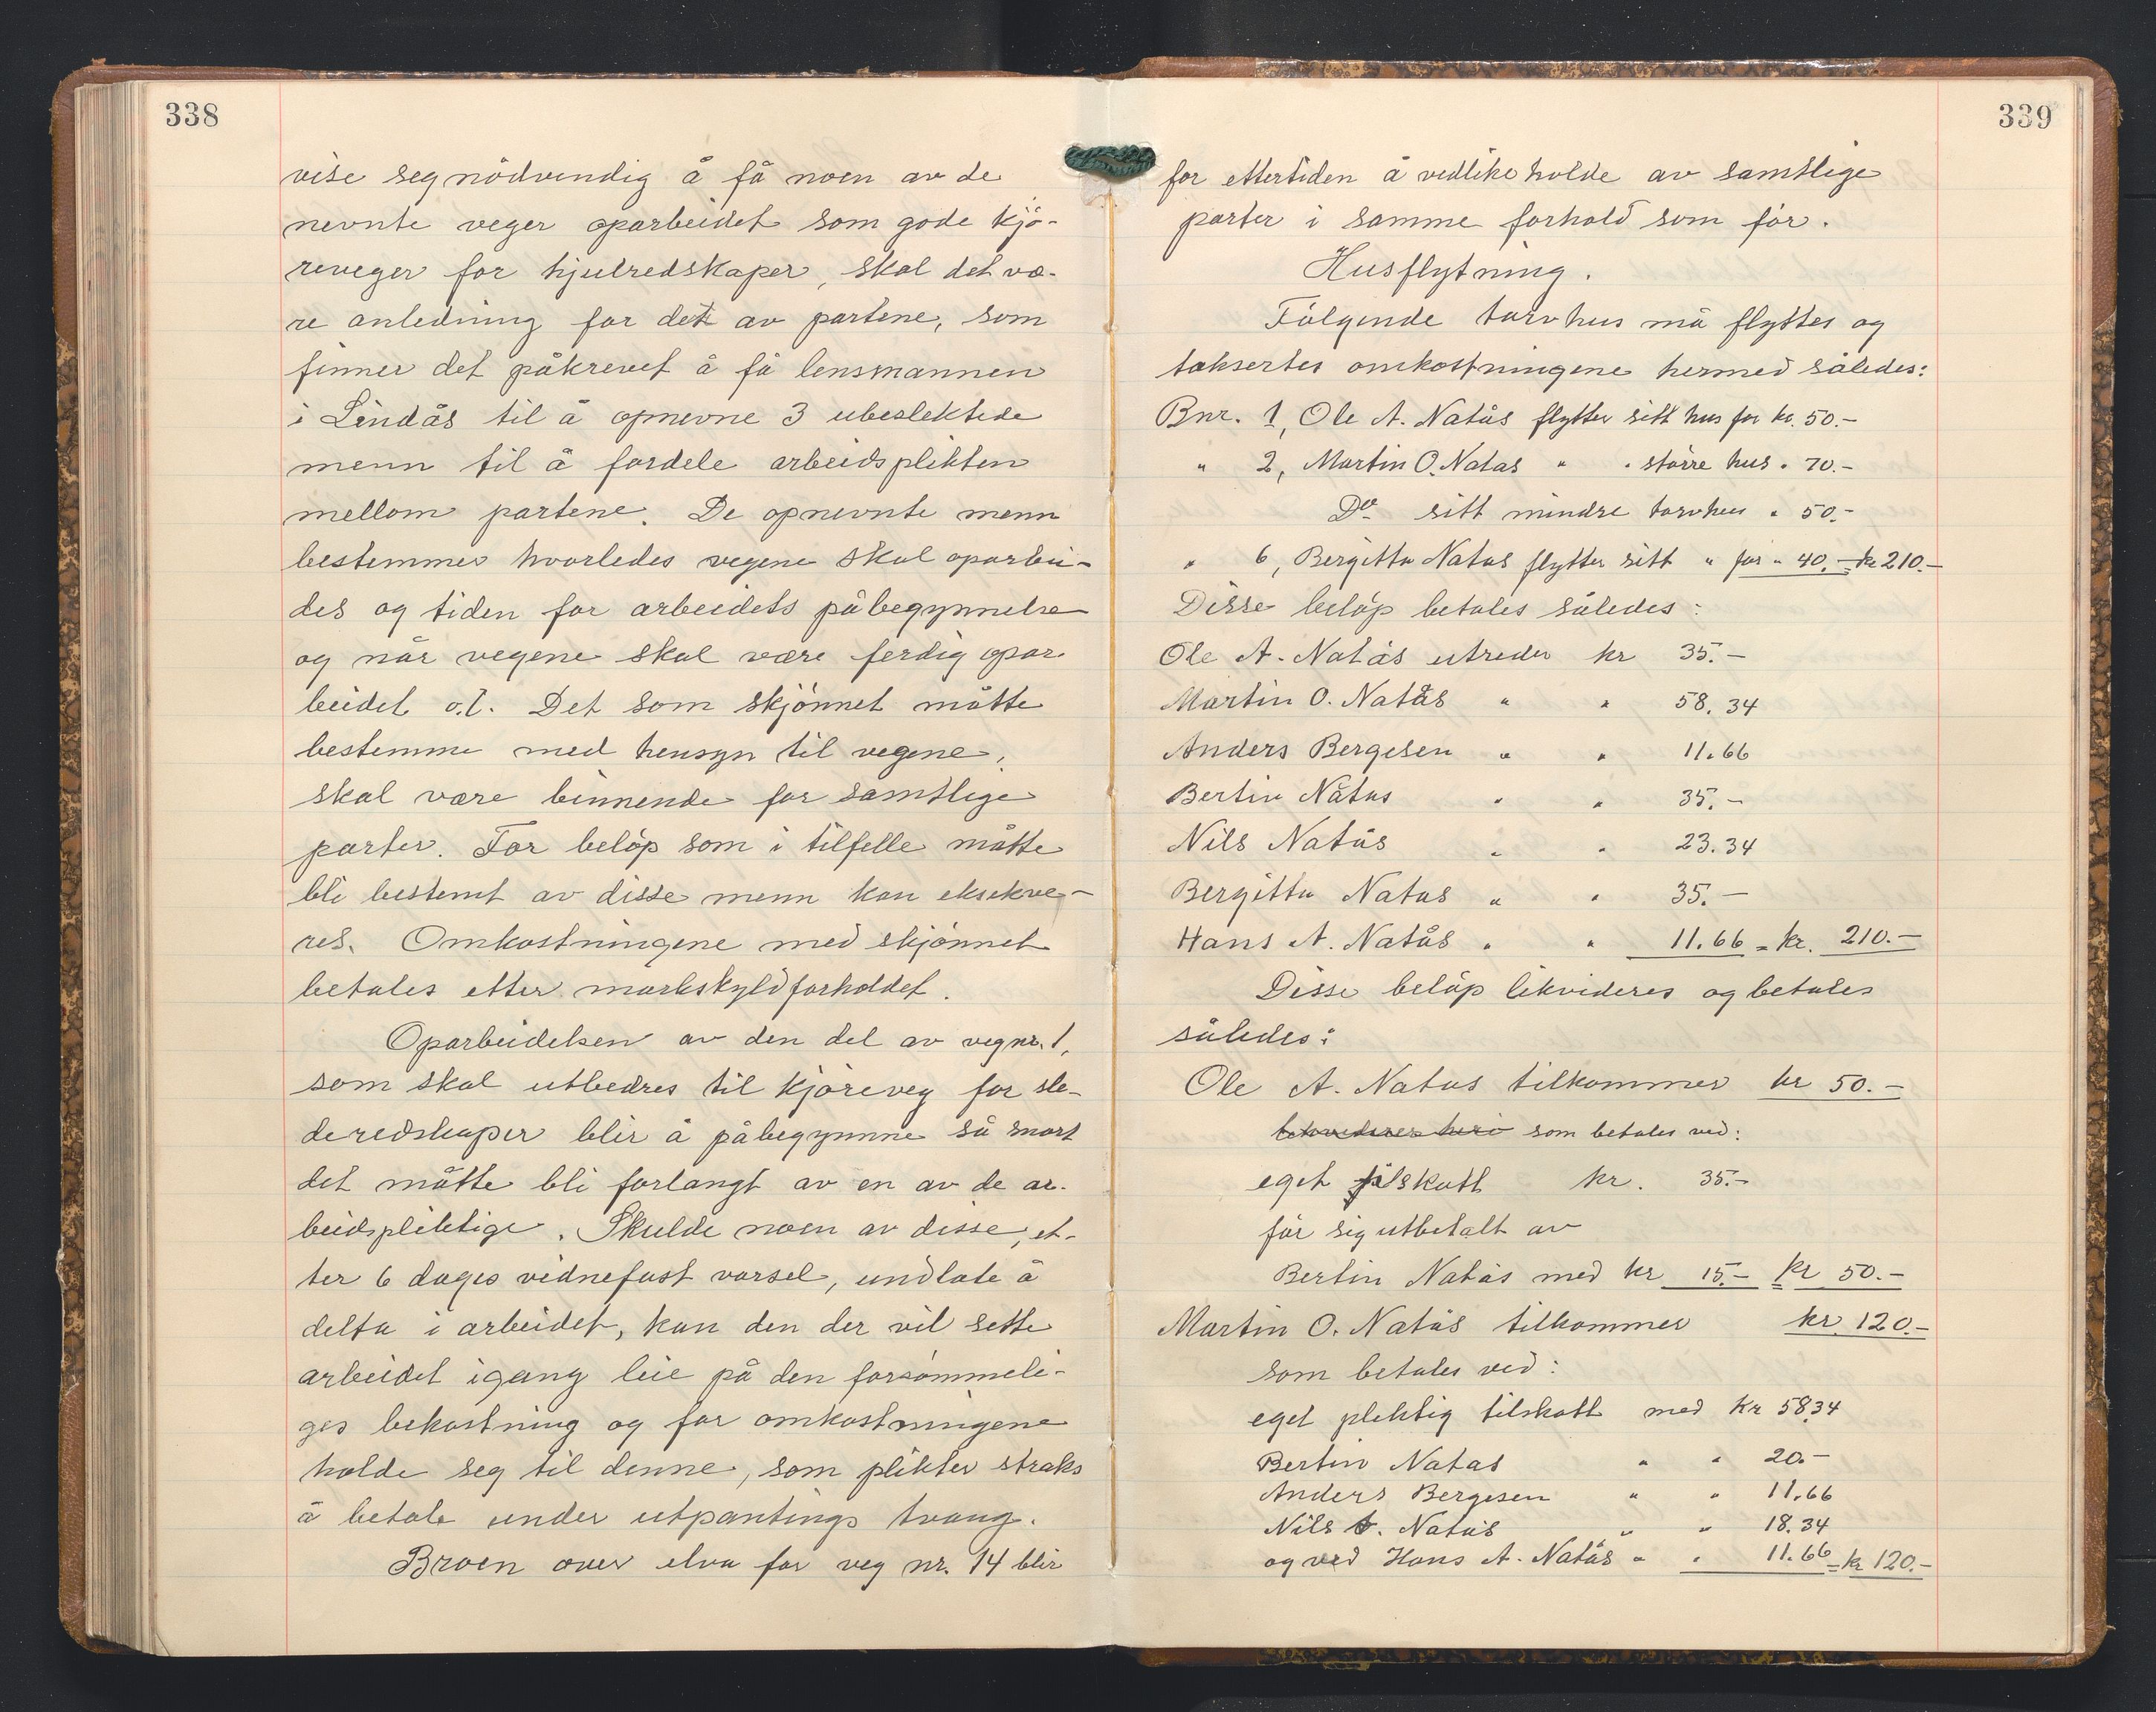 338
vise seg nödvendig å få noen av de
nevnte veger oparbeidet som gode kjö-
reveger for hjulredskaper, skal det væ-
re anledning for det av partene, som
finner det påkrevet å få lensmannen
i Lindås til å opnevne 3 ubeslektede
menn til å fordele arbeidsplikten
mellom partene. De opnevnte menn
bestemmer hvorledes vegene skal oparbei-
des og tiden for arbeidets påbegynnelse
og når vegene skal være ferdig opar
beidet o.l. Det som skjönnet måtte
bestemme med hensyn til vegene,
skal være binnende for samtlige
parter. For belöp som i tilfelle måtte
bli bestemt av disse menn kan eksekve-
res. Omkostningene med skjönnet
betales etter markskyldforholdet.
Oparbeidelsen av den del av veg nr. 1,
som skal utbedres til kjöreveg for sle-
deredskaper blir å påbegynne så snart
det måtte bli forlangt av en av de ar-
beidspliktige. Skulde noen av disse, et-
ter 6 dages vidnefast varsel, undlate å
delta i arbeidet, kan den der vil sette
arbeidet igang leie på den forsömmeli-
ges bekostning og for omkostningene
holde seg til denne, som plikter straks
å betale under utpantings tvang.
Broen over elva for veg nr. 14 blir
339
for ettertiden å vedlikeholde av samtlige
parter i samme forhold som för.
Husflytning.
Fölgende torvhus må flyttes og
taksertes omkostningene hermed således:
Bnr. 1, Ole A. Natås flytter sitt hus for kr. 50.-
" 2, Martin O. Natas " " större hus " 70.-
Do sitt mindre torvhus " 50.-
" 6, Bergitta Natas flytter sitt " for " 40.- = kr 210.-
Disse belöp betales således:
Ole A. Natås utreder kr 35.-
Martin O. Natås " " 58.34
Anders Bergesen " " 11.66
Bertin Nåtas " " 35.-
Nils Natås " " 23.34
Bergitta Natas " " 35.-
Hans A. Natås " " 11.66 = kr. 210.-
Disse belöp likvideres og betales
således:
Ole A. Natas tilkommer kr 50.-
som betales ved:
eget tilskott kr. 35.-
får sig utbetalt av
Bertin Natås med kr 15.- = kr 50.-
Martin O. Natås tilkommer kr 120.-
som betales ved:
eget pliktig tilskott med kr 58.34
Bertin Natas " " 20.-
Anders Bergesen " " 11.66
Nils A. Natås " " 18.34
og ved Hans A. Natås " " 11.66 = kr 120.-